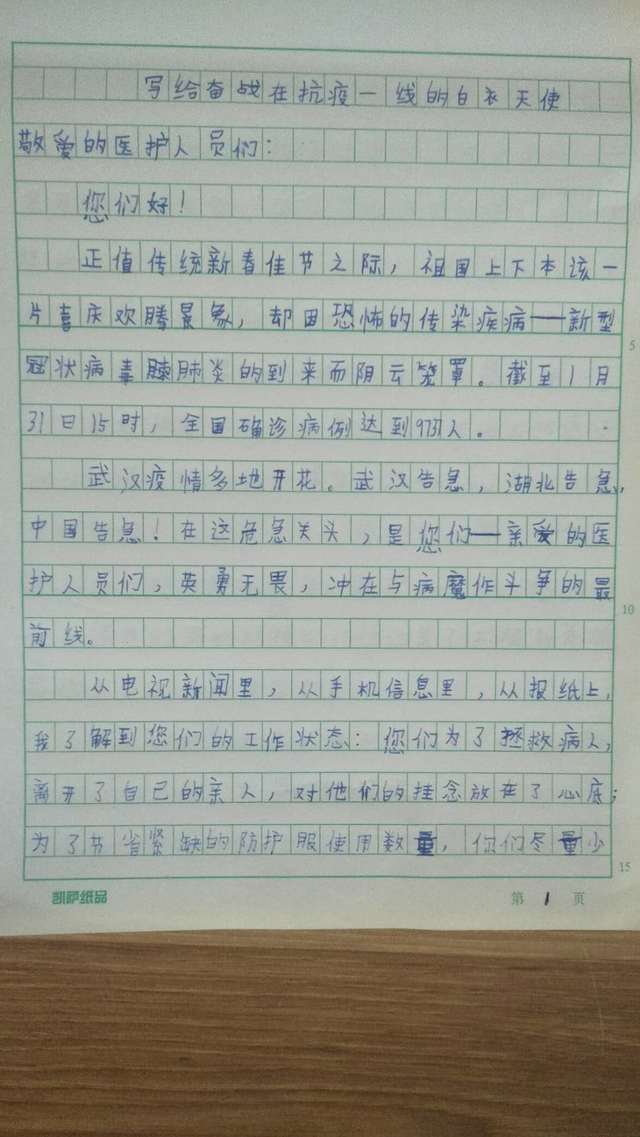 写给奋战在抗疫一线的白衣天使
敬爱的医护人员们：
您们好！
正值传统新春佳节之际，祖国上下本该一
片喜庆欢腾景象，却因恐怖的传染疾病——新型
冠状病毒肺炎的到来而阴云笼罩。截至1月
31日15时，全国确诊病例达到9737人。
武汉疫情多地开花。武汉告急，湖北告急，
中国告急！在这危急关头，是您们——亲爱的医
护人员们，英勇无畏，冲在与病魔作斗争的最
前线。
从电视新闻里，从手机信息里，从报纸上，
我了解到您们的工作状态：您们为了拯救病人，
离开了自己的亲人，对他们的挂念放在了心底；
为了节省紧缺的防护服使用数量，你们尽量少
5
10
15
凯萨纸品
第 1 页